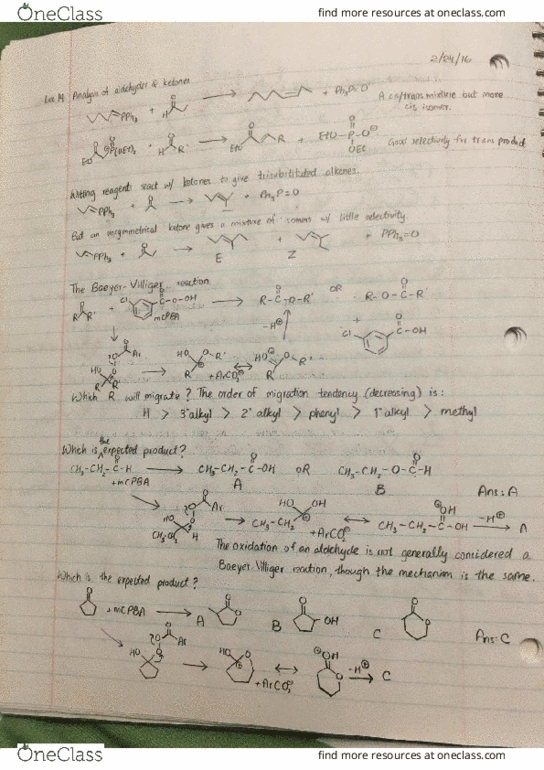 OneClass
find more resources at oneclass.com
2/24/16
Lec 14 Analysis of aldehydes & ketones
PPh₃ + H O → + Ph₃P=O A cis/trans mixture but more
cis isomer.
EtO O P(OEt)₂ + H O R' → EtO O R + EtO-P-O⊖ O OEt Good selectivity for trans product
Wittig reagents react w/ ketones to give trisubstituted alkenes.
PPh₃ + O → + Ph₃P=O
But an unsymmetrical ketone gives a mixture of isomers w/ little selectivity.
PPh₃ + O → E + Z + PPh₃=O
The Baeyer-Villiger reaction
R R' O + Cl O O-OH mCPBA → R-C-O-R' O OR R-O-C-R' O
-H⊕ + Cl O C-OH
HO O O Ar R R' → HO O-R' R + ArCO₃⊖ ↔ HO O-R' R
Which R will migrate? The order of migration tendency (decreasing) is:
H > 3° alkyl > 2° alkyl > phenyl > 1° alkyl > methyl
Which is the expected product?
CH₃-CH₂-C-H O + mCPBA → CH₃-CH₂-C-OH O OR CH₃-CH₂-O-C-H O
A B Ans: A
HO O O Ar H → HO OH CH₃-CH₂ + ArCO₂⊖ ↔ CH₃-CH₂-C-OH ⊕OH -H⊕ → A
The oxidation of an aldehyde is not generally considered a
Baeyer-Villiger reaction, though the mechanism is the same.
Which is the expected product?
O + mCPBA → A O O B O OH C O O Ans: C
HO O O Ar → HO O ⊕ + ArCO₂⊖ ↔ ⊕OH O -H⊕ → C
OneClass
find more resources at oneclass.com